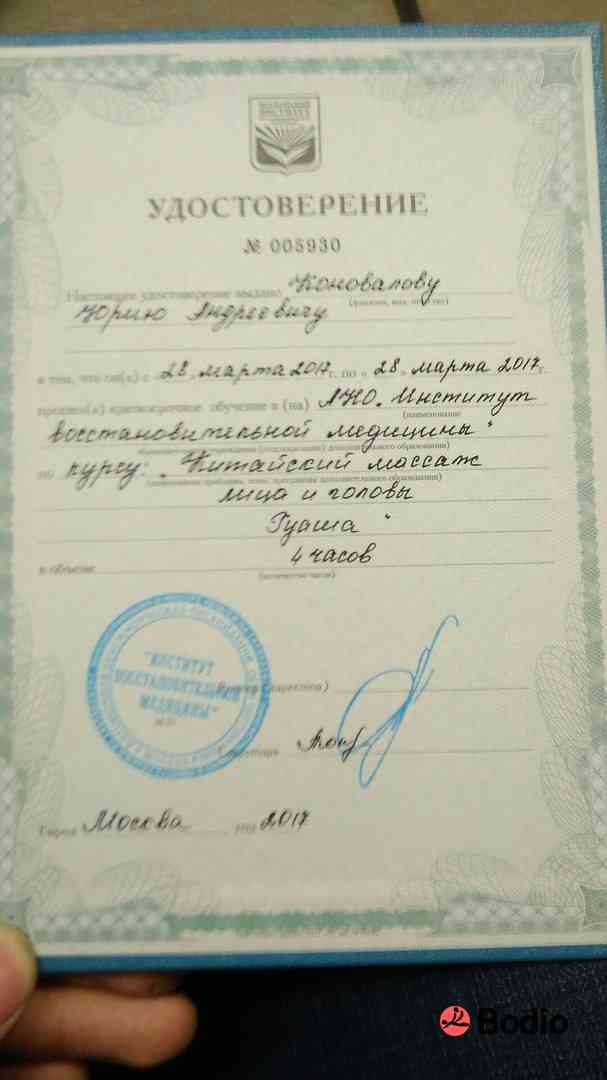 УДОСТОВЕРЕНИЕ
№ 005930
Настоящее удостоверение выдано Коновалову
(фамилия, имя, отчество)
Юрию Андреевичу
в том, что он(а) с « 28 » марта 2017г. по « 28 » марта 2017г.
прошел(а) краткосрочное обучение в (на) АНО. "Институт
(наименование
восстановительной медицины"
дополнительного образования)
по курсу: "Китайский массаж
дополнительного образования)
лица и головы
Гуаша"
в объеме 4 часов
(количество часов)
"ИНСТИТУТ
ВОССТАНОВИТЕЛЬНОЙ
МЕДИЦИНЫ"
Ректор (директор)
Секретарь
Город Москва год 2017
Bodio